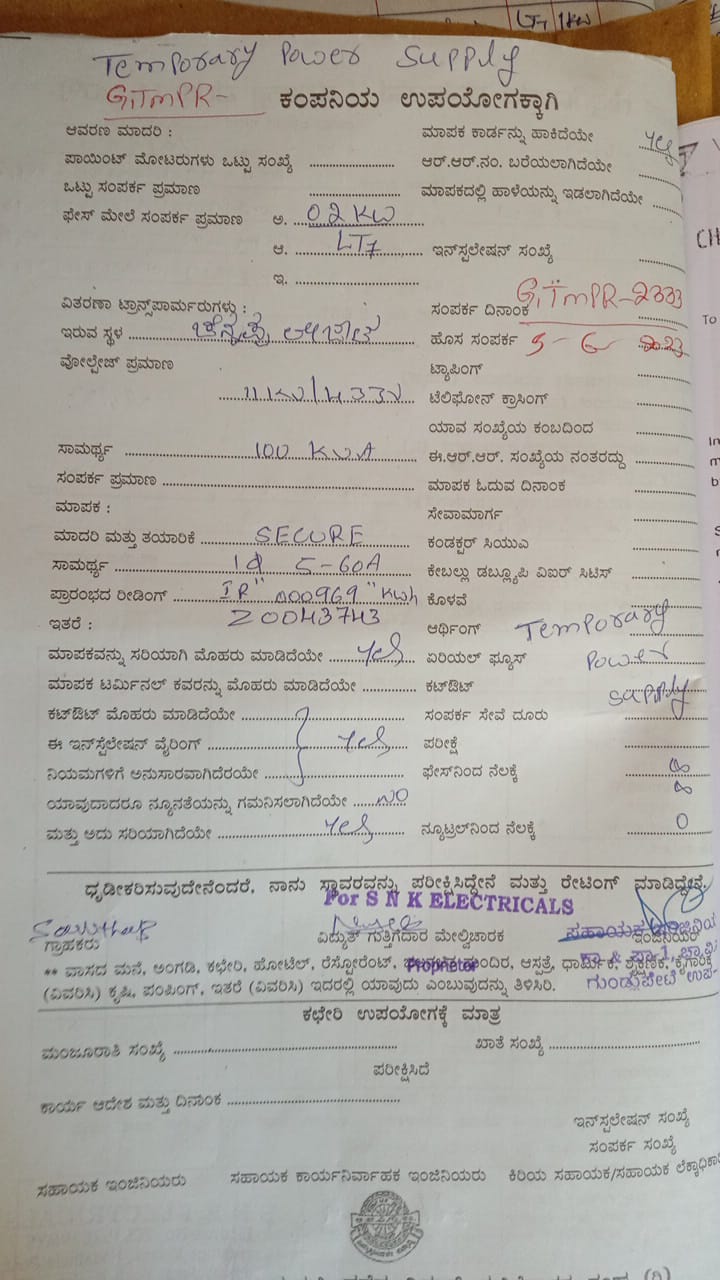 LT7 1KW
Temporary Power Supply
GiTMPR- ಕಂಪನಿಯ ಉಪಯೋಗಕ್ಕಾಗಿ
ಆವರಣ ಮಾದರಿ : ಮಾಪಕ ಕಾರ್ಡನ್ನು ಹಾಕಿದೆಯೇ Yes
ಪಾಯಿಂಟ್ ಮೋಟರುಗಳು ಒಟ್ಟು ಸಂಖ್ಯೆ ಆರ್.ಆರ್.ನಂ. ಬರೆಯಲಾಗಿದೆಯೇ
ಒಟ್ಟು ಸಂಪರ್ಕ ಪ್ರಮಾಣ ಮಾಪಕದಲ್ಲಿ ಹಾಳೆಯನ್ನು ಇಡಲಾಗಿದೆಯೇ
ಫೇಸ್ ಮೇಲೆ ಸಂಪರ್ಕ ಪ್ರಮಾಣ ಅ. 02 KW
ಆ. LT7 ಇನ್‌ಸ್ಟಲೇಷನ್ ಸಂಖ್ಯೆ
ಇ.
ವಿತರಣಾ ಟ್ರಾನ್ಸ್‌ಪಾರ್ಮರುಗಳು : ಸಂಪರ್ಕ ದಿನಾಂಕ GiTMPR-2333
ಇರುವ ಸ್ಥಳ ಹೊಸ ಸಂಪರ್ಕ 5-6 2023
ವೋಲ್ಟೇಜ್ ಪ್ರಮಾಣ ಟ್ಯಾಪಿಂಗ್
11KV/433V ಟೆಲಿಫೋನ್ ಕ್ರಾಸಿಂಗ್
ಯಾವ ಸಂಖ್ಯೆಯ ಕಂಬದಿಂದ
ಸಾಮರ್ಥ್ಯ 100 KVA ಈ.ಆರ್.ಆರ್. ಸಂಖ್ಯೆಯ ನಂತರದ್ದು
ಸಂಪರ್ಕ ಪ್ರಮಾಣ ಮಾಪಕ ಓದುವ ದಿನಾಂಕ
ಮಾಪಕ : ಸೇವಾಮಾರ್ಗ
ಮಾದರಿ ಮತ್ತು ತಯಾರಿಕೆ SECURE ಕಂಡಕ್ಟರ್ ಸಿಯುಎ
ಸಾಮರ್ಥ್ಯ 1Φ 5-60A ಕೇಬಲ್ಲು ಡಬ್ಲ್ಯೂಪಿ ವಿಐರ್ ಸಿಟಿಸ್
ಪ್ರಾರಂಭದ ರೀಡಿಂಗ್ IR "000969" KWh ಕೊಳವೆ
ಇತರೆ : 20043743 ಆರ್ಥಿಂಗ್ Temporary
ಮಾಪಕವನ್ನು ಸರಿಯಾಗಿ ಮೊಹರು ಮಾಡಿದೆಯೇ Yes ಏರಿಯಲ್ ಫ್ಯೂಸ್ Power
ಮಾಪಕ ಟರ್ಮಿನಲ್ ಕವರನ್ನು ಮೊಹರು ಮಾಡಿದೆಯೇ ಕಟ್‌ಔಟ್ Supply
ಕಟ್‌ಔಟ್ ಮೊಹರು ಮಾಡಿದೆಯೇ ಸಂಪರ್ಕ ಸೇವೆ ದೂರು
ಈ ಇನ್‌ಸ್ಟೆಲೇಷನ್ ವೈರಿಂಗ್ Yes ಪರೀಕ್ಷೆ
ನಿಯಮಗಳಿಗೆ ಅನುಸಾರವಾಗಿದೆರಯೇ ಫೇಸ್‌ನಿಂದ ನೆಲಕ್ಕೆ ∞
∞
ಯಾವುದಾದರೂ ನ್ಯೂನತೆಯನ್ನು ಗಮನಿಸಲಾಗಿದೆಯೇ NO
ಮತ್ತು ಅದು ಸರಿಯಾಗಿದೆಯೇ Yes ನ್ಯೂಟ್ರಲ್‌ನಿಂದ ನೆಲಕ್ಕೆ 0
ಧೃಡೀಕರಿಸುವುದೇನೆಂದರೆ, ನಾನು ಸ್ಥಾವರವನ್ನು ಪರೀಕ್ಷಿಸಿದ್ದೇನೆ ಮತ್ತು ರೇಟಿಂಗ್ ಮಾಡಿದ್ದೇನೆ.
For S N K ELECTRICALS
ಗ್ರಾಹಕರು ವಿದ್ಯುತ್ ಗುತ್ತಿಗೆದಾರ ಮೇಲ್ವಿಚಾರಕ ಸಹಾಯಕ ಇಂಜಿನಿಯರ್
Proprietor
** ವಾಸದ ಮನೆ, ಅಂಗಡಿ, ಕಛೇರಿ, ಹೋಟೆಲ್, ರೆಸ್ಟೋರೆಂಟ್, ಮಂದಿರ, ಆಸ್ಪತ್ರೆ, ಧಾರ್ಮಿಕ, ಶೈಕ್ಷಣಿಕ, ಕೈಗಾರಿಕೆ
(ವಿವರಿಸಿ) ಕೃಷಿ, ಪಂಪಿಂಗ್, ಇತರೆ (ವಿವರಿಸಿ) ಇದರಲ್ಲಿ ಯಾವುದು ಎಂಬುವುದನ್ನು ತಿಳಿಸಿರಿ. ಗುಂಡ್ಲುಪೇಟೆ ಉಪ-
ಕಛೇರಿ ಉಪಯೋಗಕ್ಕೆ ಮಾತ್ರ
ಮಂಜೂರಾತಿ ಸಂಖ್ಯೆ ಖಾತೆ ಸಂಖ್ಯೆ
ಪರೀಕ್ಷಿಸಿದೆ
ಕಾರ್ಯ ಆದೇಶ ಮತ್ತು ದಿನಾಂಕ
ಇನ್‌ಸ್ಟಲೇಷನ್ ಸಂಖ್ಯೆ
ಸಂಪರ್ಕ ಸಂಖ್ಯೆ
ಸಹಾಯಕ ಇಂಜಿನಿಯರು ಸಹಾಯಕ ಕಾರ್ಯನಿರ್ವಾಹಕ ಇಂಜಿನಿಯರು ಕಿರಿಯ ಸಹಾಯಕ/ಸಹಾಯಕ ಲೆಕ್ಕಾಧಿಕಾರಿ
CH
To